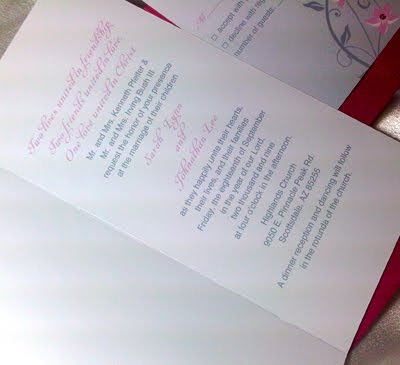 Two lives united in friendship,
Two friends united in love,
One love united in Christ
Mr. and Mrs. Kenneth Pfeifer &
Mr. and Mrs. Irving Bush III,
request the honor of your presence
at the marriage of their children
Sarah Lynn
and
Johnathan Lee
as they happily unite their hearts,
their lives, and their families
Friday, the eighteenth of September
in the year of our Lord,
two thousand and nine
at four o'clock in the afternoon.
Highlands Church
9050 E. Pinnacle Peak Rd.
Scottsdale, AZ 85255
A dinner reception and dancing will follow
in the rotunda of the church.
M
accept with
decline with re
number of guests: